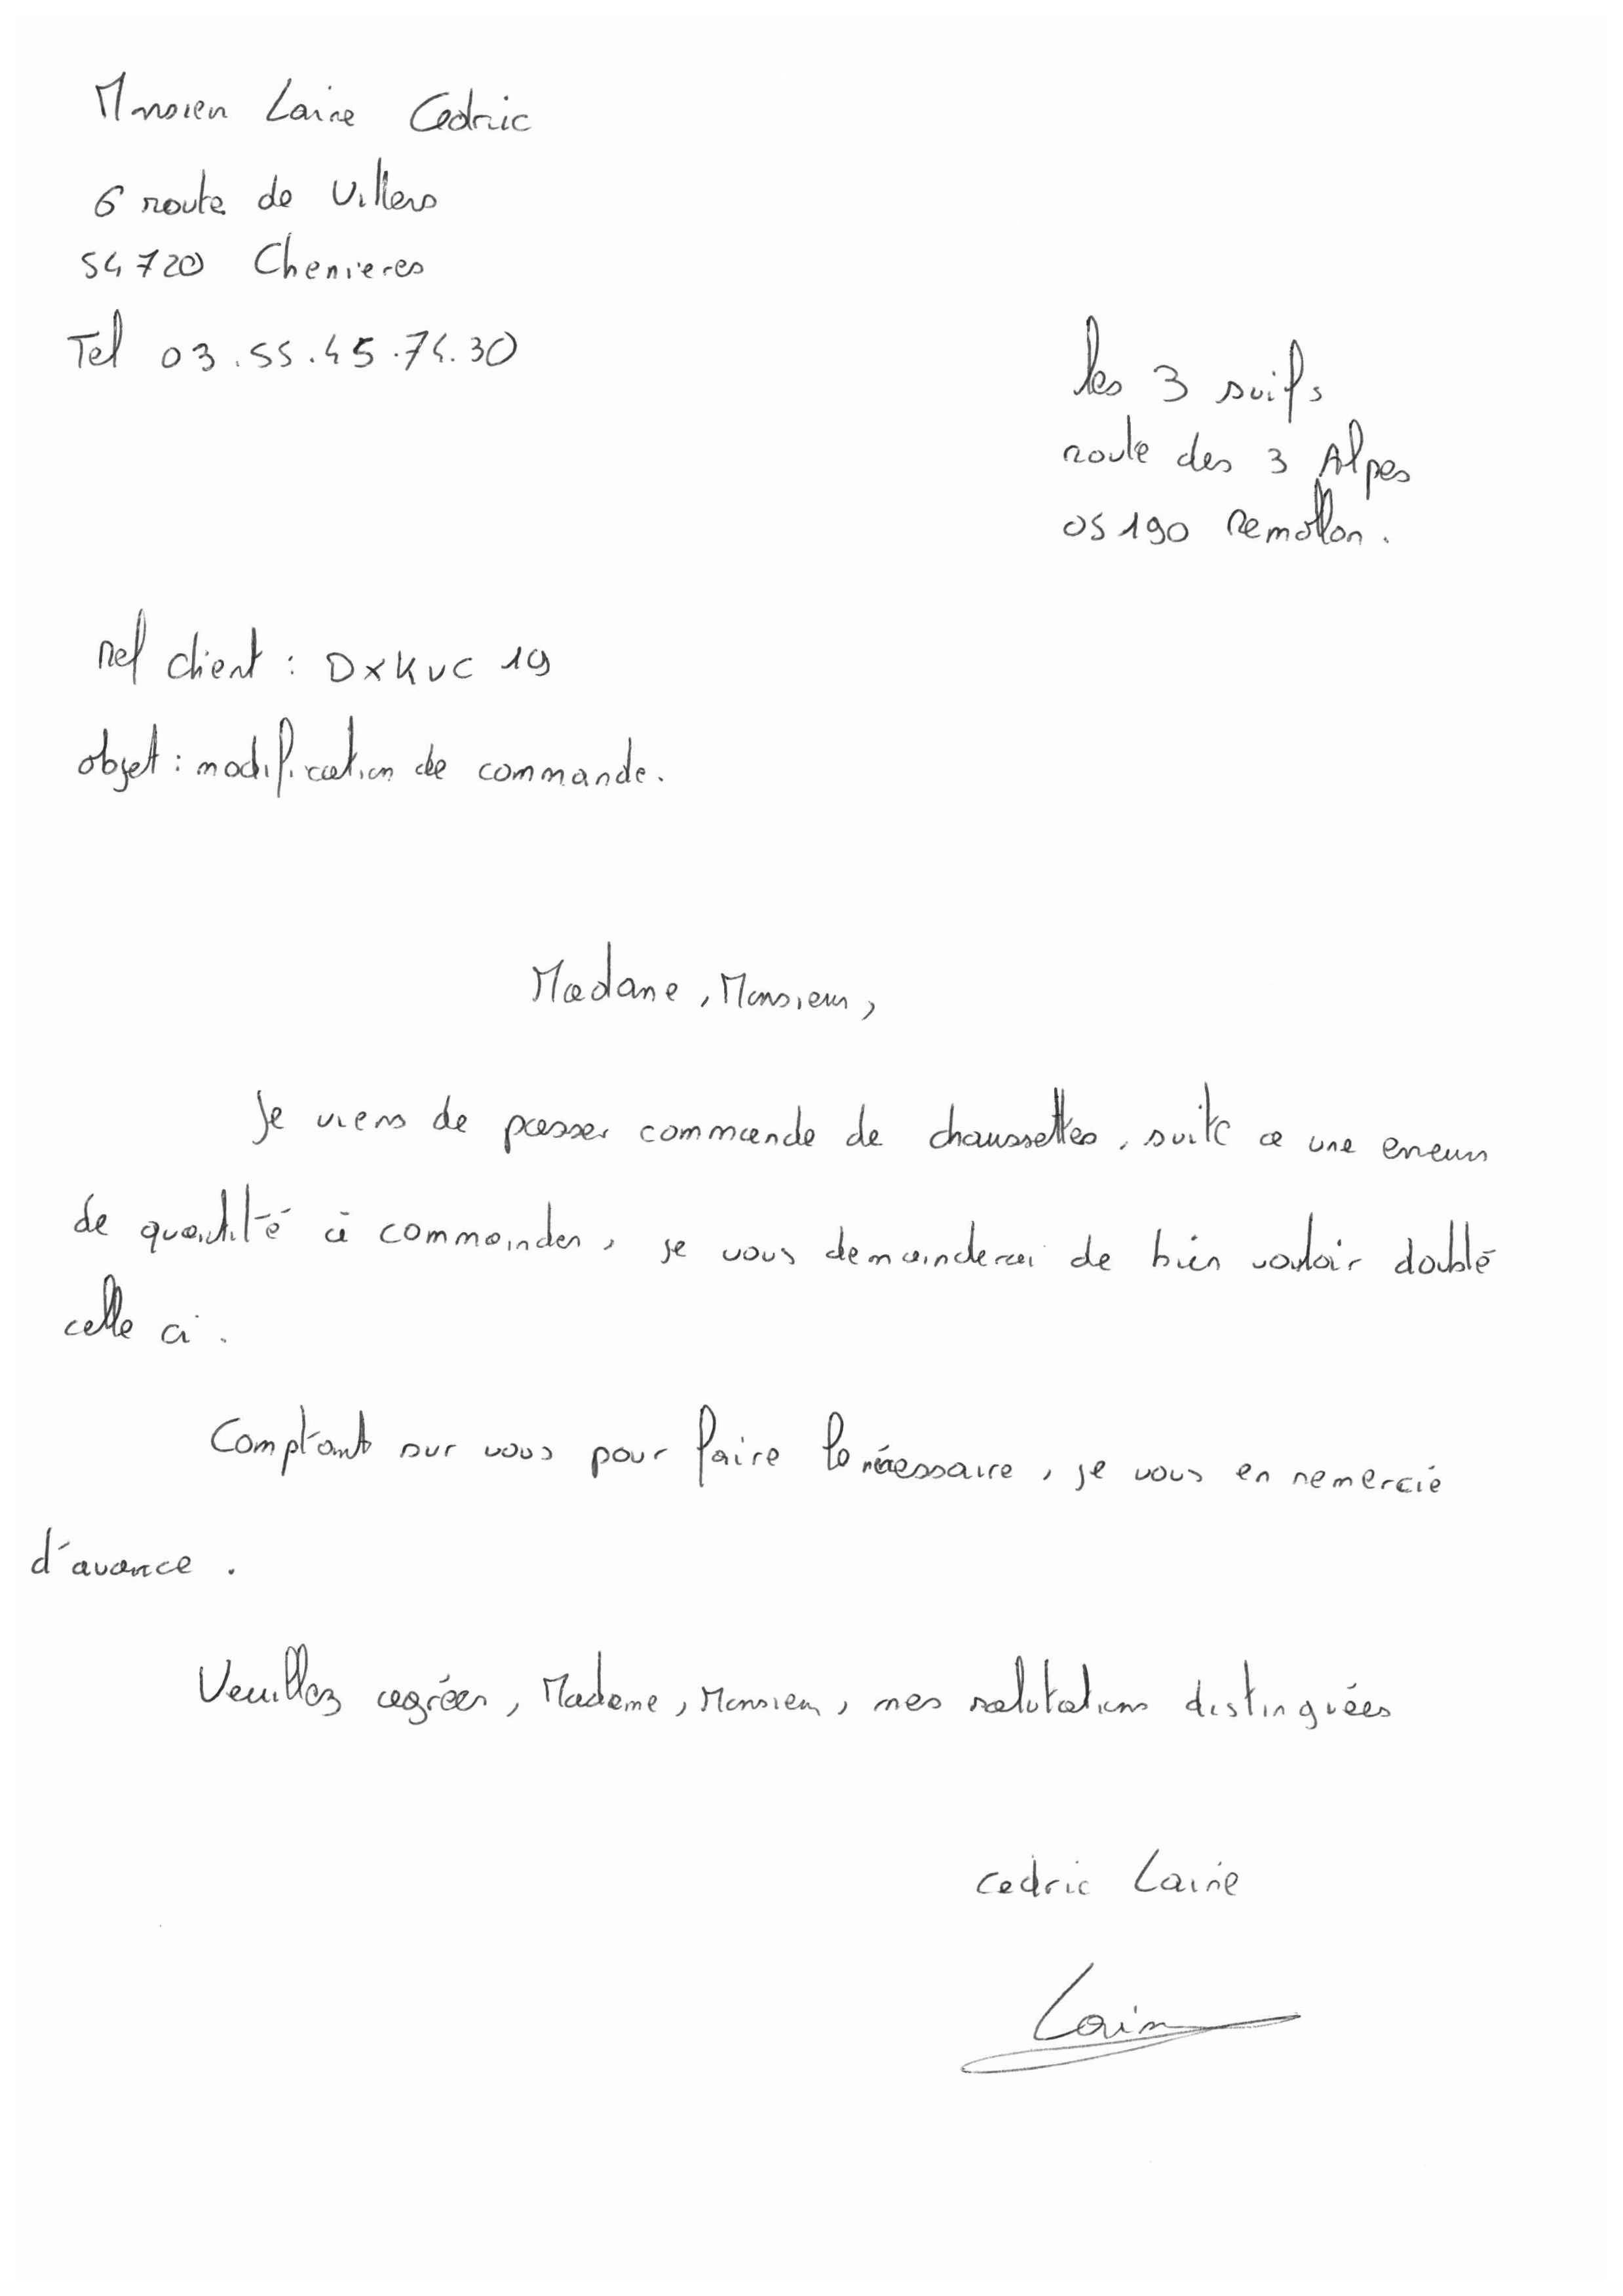 Monsieur Laine Cedric
6 route de Villers
54720 Chenieres
Tel 03.55.45.74.30
les 3 suifs
route des 3 Alpes
05190 Remollon.
ref client : DXKVC 19
objet : modification de commande.
Madame, Monsieur,
Je viens de passer commande de chaussettes, suite a une erreur
de quantité à commander, je vous demanderai de bien vouloir doublé
celle ci.
Comptant sur vous pour faire le nécessaire, je vous en remercie
d'avance.
Veuillez agréer, Madame, Monsieur, mes salutations distinguées
Cedric Laine
Laine